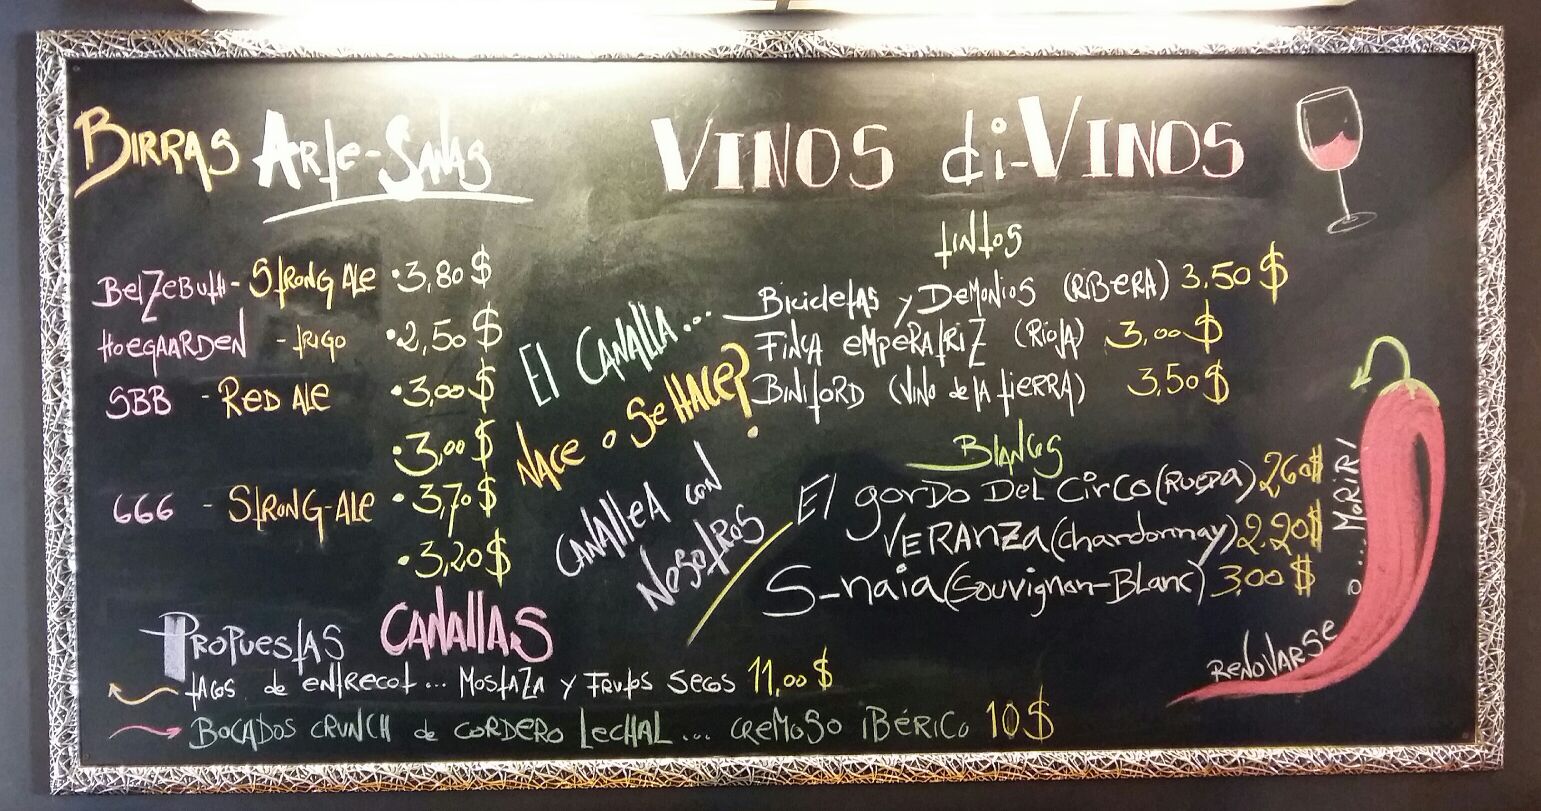 BIRRAS ARte-SANAS
BelZeButH - StRONG Ale ·3,80 $
HOEGAARDEN - tRIGO ·2,50 $
SBB - RED ALE ·3,00 $
·3,00 $
666 - StRONG-ALE ·3,70 $
·3,20 $
El CANAllA...
NACE o Se HACE?
CANAlleA CON
NOSOtROS
VINOS di-VINOS
tINtOS
BicicletAS y DeMONiOS (RiBeRA) 3,50 $
FINCA eMPeRAtRiZ (RiOJA) 3,00 $
BINIFORD (VINO de lA tIERRA) 3,50 $
BlANCOS
El gORDO DeL CiRCO (RUEDA) 2,60 $
VERANZA (Chardonnay) 2,20 $
S-naia (Souvignon-Blanc) 3,00 $
RENOVARSE
O... MORIR!
PROPUEStAS CANAllAS
tACOS de eNtRECOt... MOStAZA y FRUtOS SeCOS 11,00 $
BOCADOS CRUNCH de CORDERO LeCHAL... CReMOSO IBÉRICO 10 $